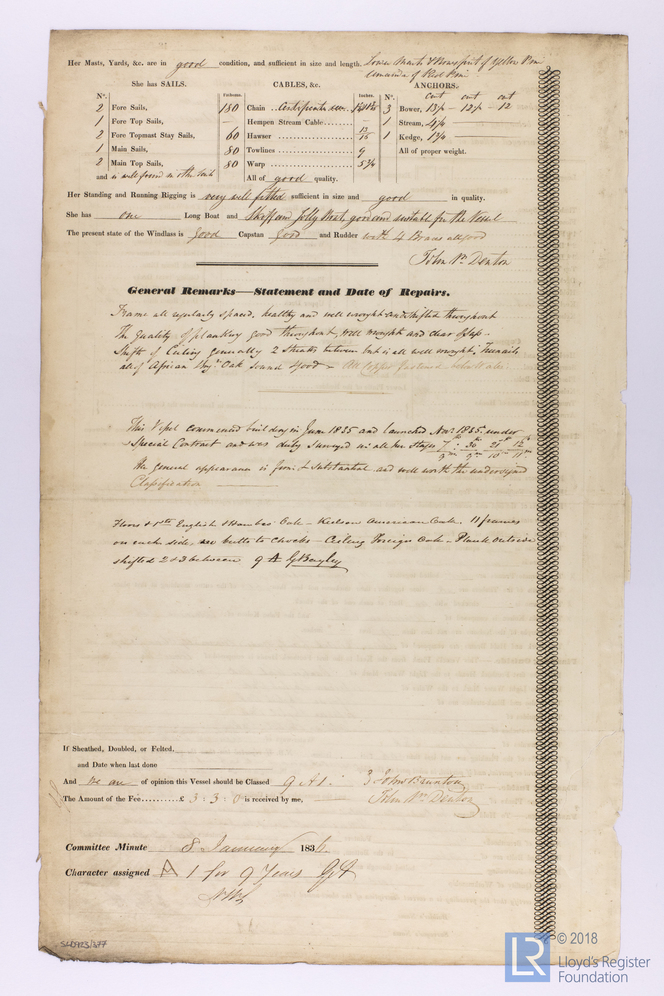 Her Masts, Yards, &c. are in good condition, and sufficient in size and length. Lower Masts & Bowsprit of Yellow Pine
Remainder of Red Pine
She has SAILS. CABLES, &c. ANCHORS.
N°. Fathoms. Inches. N°. cwt cwt cwt
2 Fore Sails, 180 Chain 3 Bower, 12
1 Fore Top Sails, — Hempen Stream Cable — 1 Stream,
2 Fore Topmast Stay Sails, 60 Hawser 1 Kedge,
1 Main Sails, 80 Towlines 9 All of proper weight.
2 Main Top Sails, 80 Warp
and is well found in other Sails All of good quality.
Her Standing and Running Rigging is very well fitted sufficient in size and good in quality.
She has one Long Boat and Skiff and Jolly Boat good and suitable for the Vessel
The present state of the Windlass is Good Capstan Good and Rudder with 4 Braces all good
John Wm Denton
General Remarks—Statement and Date of Repairs.
Frame all regularly spaced, healthy and well wrought and shifted throughout
The Quality of planking good throughout, well wrought and clear of sap -
Shift of Ceiling generally 2 Strakes between but is all well wrought, Treenails
all of African Oak Sound & good -
This Vessel commenced building in June 1835 and launched Nov. 1835 under
Special Contract and was duly surveyed in all her Stages
The general appearance is firm & Substantial and well worth the undersigned
Classification
Floors & 1st English & Hambro Oak - Keelson American Oak. 11 frames
on each side no butts to Chocks - Ceiling Foreign Oak - Plank outside
shifted 2 & 3 between 9 A G Bayley
If Sheathed, Doubled, or Felted.
and Date when last done
And We are of opinion this Vessel should be Classed 9 A 1. John Brunton
The Amount of the Fee..........£ 3 : 3 : 0 is received by me, John Wm Denton
Committee Minute 8 January 1836.
Character assigned A 1 for 9 Years
© 2018
LR Lloyd's Register
Foundation